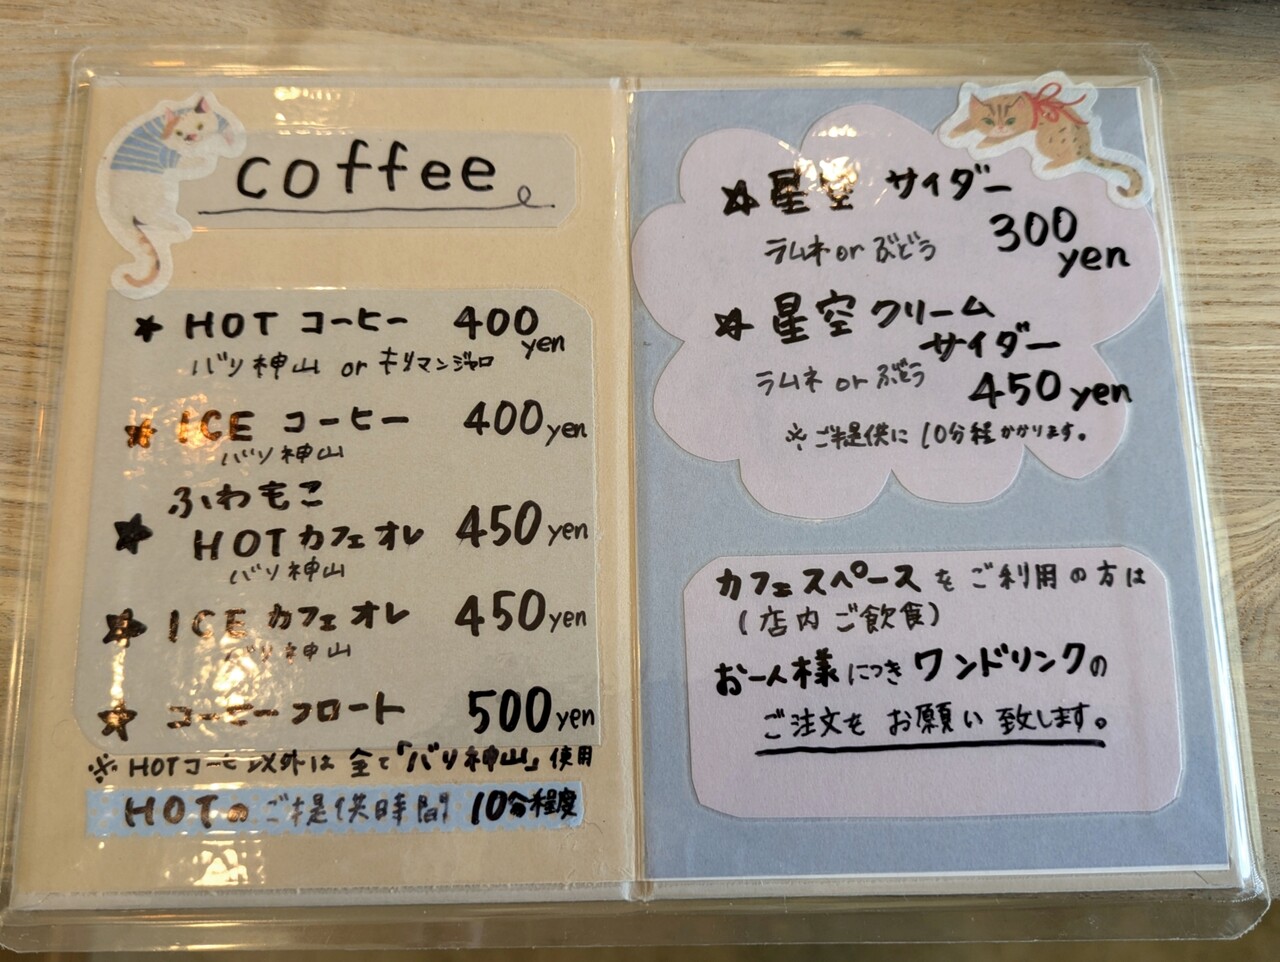 coffee
★ HOT コーヒー 400 yen
バリ神山 or キリマンジャロ
★ ICE コーヒー 400 yen
バリ神山
ふわもこ
★ HOT カフェオレ 450 yen
バリ神山
★ ICE カフェオレ 450 yen
バリ神山
★ コーヒーフロート 500 yen
※HOTコーヒー以外は全て「バリ神山」使用
HOTのご提供時間 10分程度
★ 星空 サイダー
300 yen
ラムネ or ぶどう
★ 星空 クリーム
サイダー
ラムネ or ぶどう
450 yen
※ご提供に10分程かかります。
カフェスペースをご利用の方は
(店内ご飲食)
お一人様につきワンドリンクの
ご注文をお願い致します。